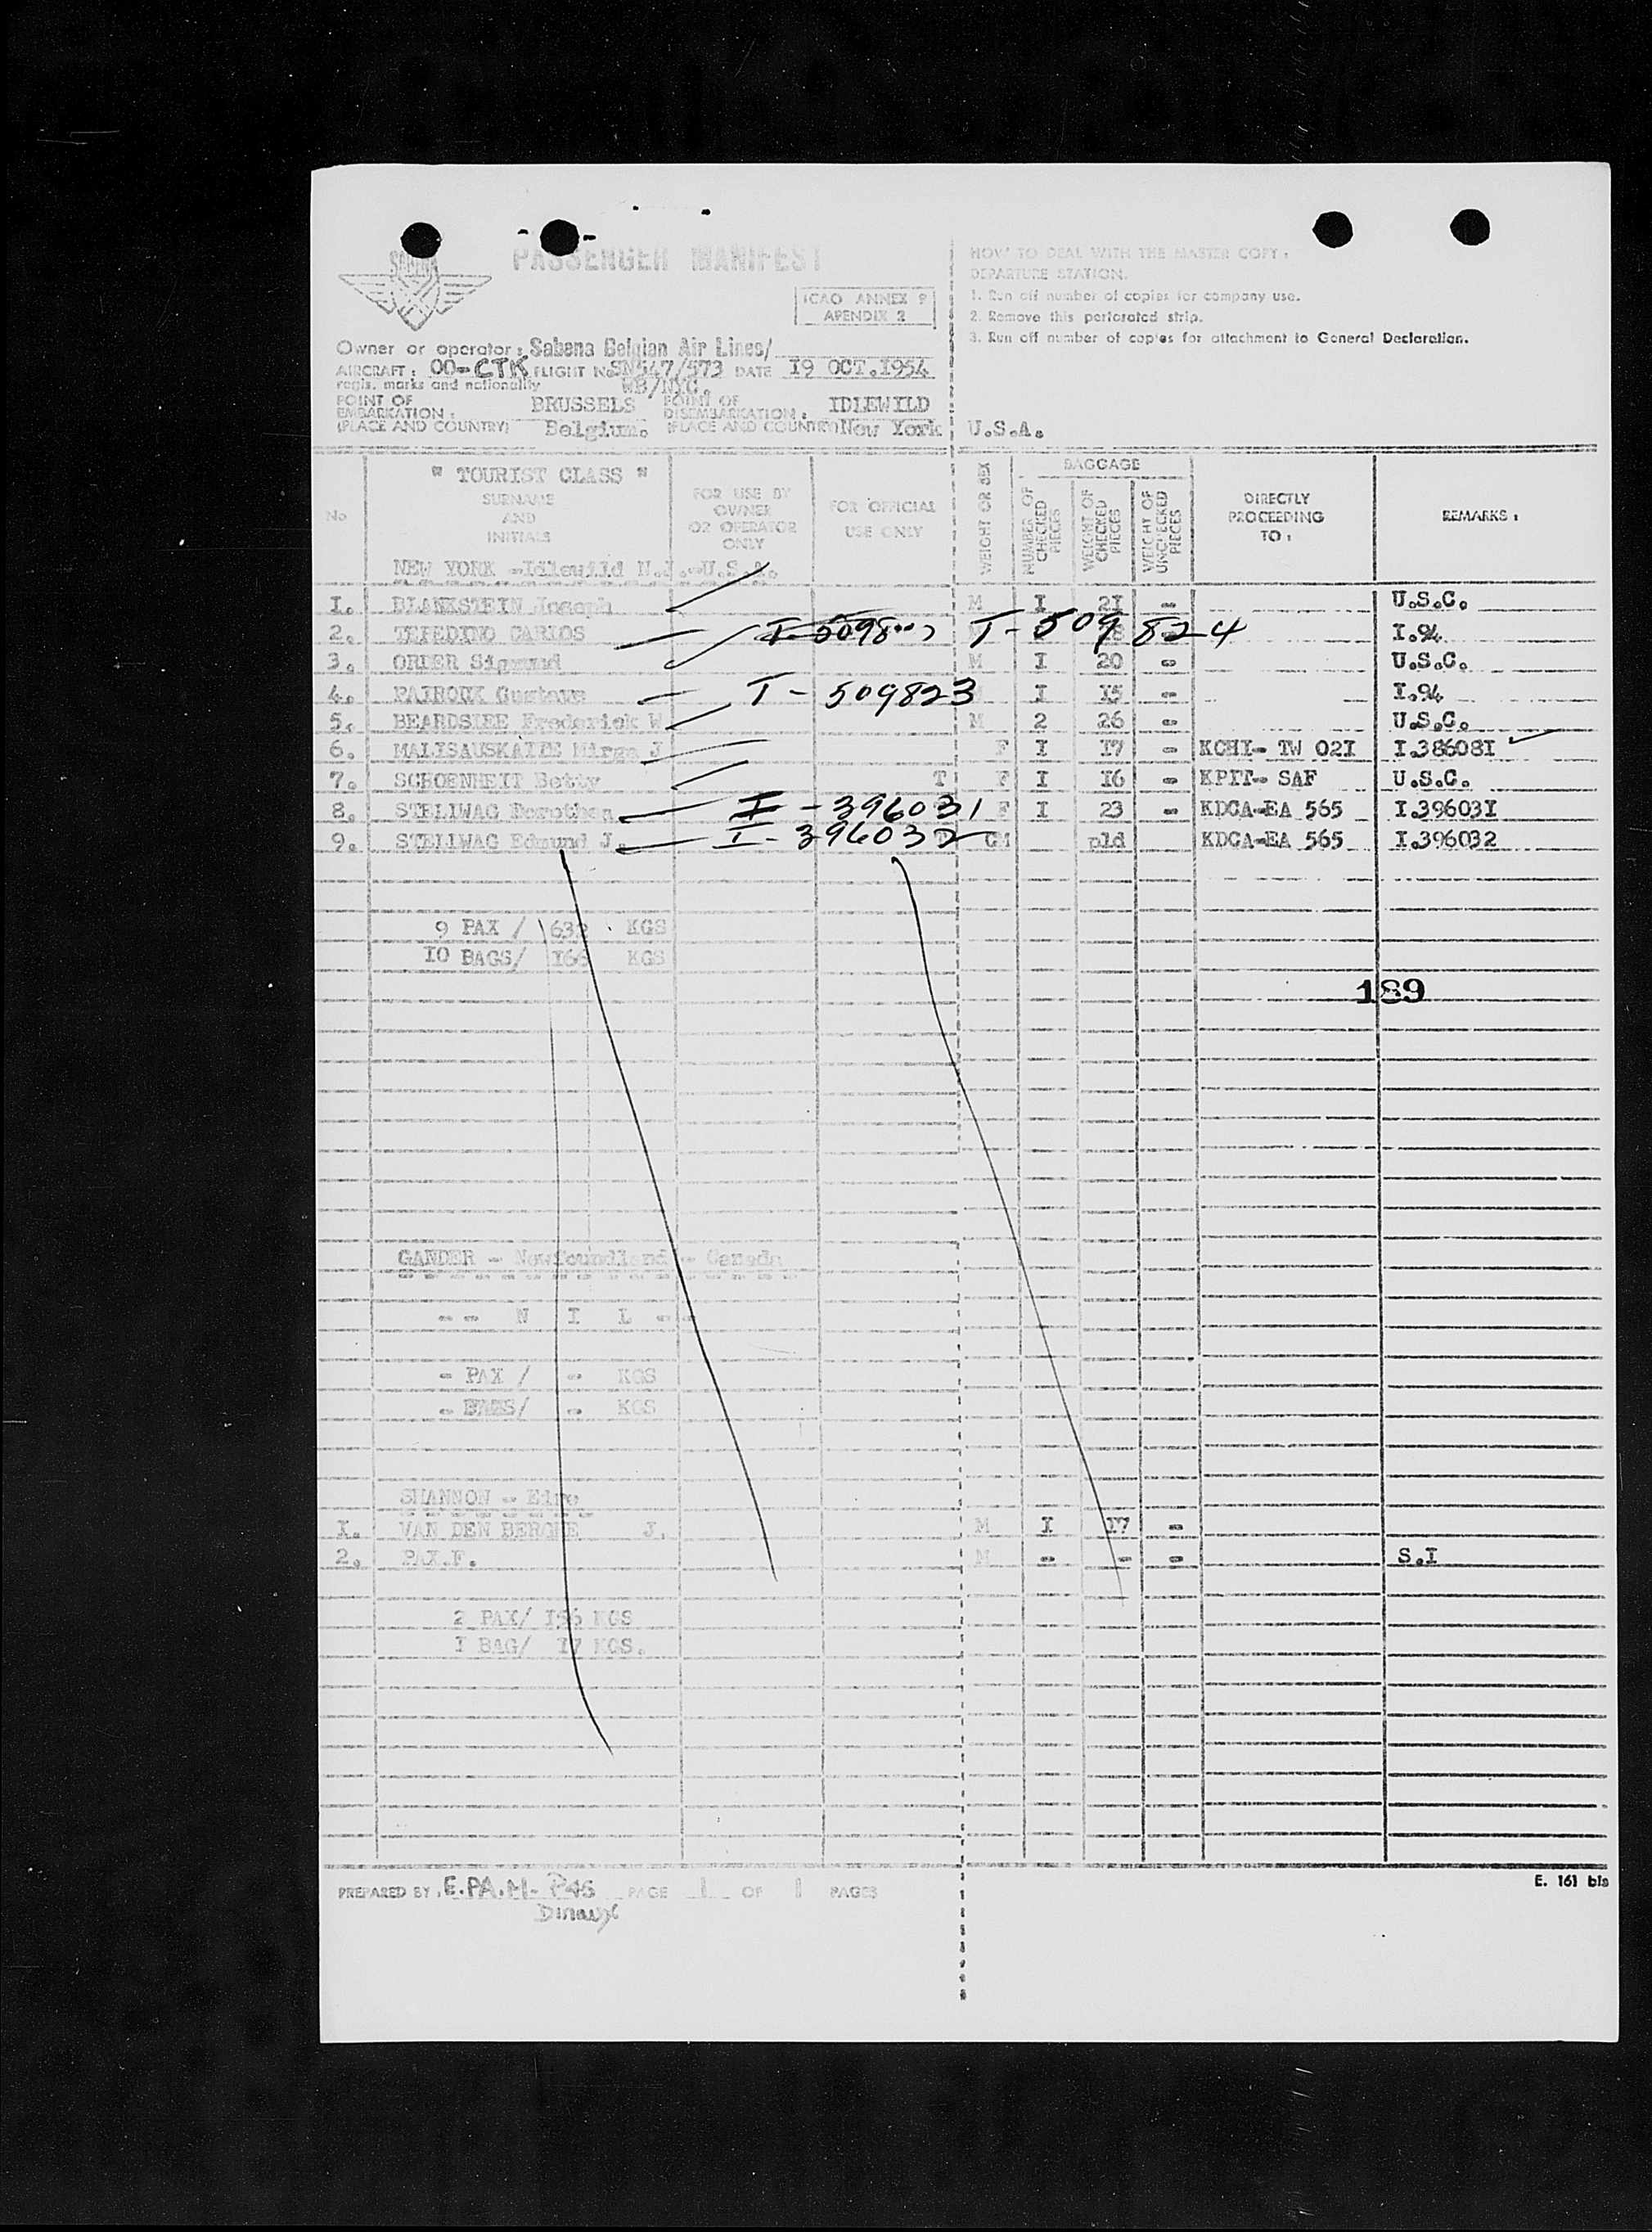 SABENA
PASSENGER MANIFEST
ICAO ANNEX 9
APENDIX 2
HOW TO DEAL WITH THE MASTER COPY :
DEPARTURE STATION.
1. Run off number of copies for company use.
2. Remove this perforated strip.
3. Run off number of copies for attachment to General Declaration.
Owner or operator : Sabena Belgian Air Lines/
AIRCRAFT : OO-CTK FLIGHT No SN547/573 DATE 19 OCT.1954
regis. marks and nationality WB/NYC.
POINT OF EMBARKATION : BRUSSELS POINT OF DISEMBARKATION : IDLEWILD
(PLACE AND COUNTRY) Belgium. (PLACE AND COUNTRY) New York U.S.A.
No
" TOURIST CLASS "
SURNAME
AND
INITIALS
FOR USE BY
OWNER
OR OPERATOR
ONLY
FOR OFFICIAL
USE ONLY
WEIGHT OR SEX
BAGGAGE
NUMBER OF CHECKED PIECES
WEIGHT OF CHECKED PIECES
WEIGHT OF UNCHECKED PIECES
DIRECTLY
PROCEEDING
TO :
REMARKS :
NEW YORK -Idlewild N.J.-U.S.A.
I. BLANKSTEIN Joseph M I 2I - U.S.C.
2. TEFEDINO CARLOS T-509824 I.94
3. ORDER Sigmund M I 20 - U.S.C.
4. Gustave T-509823 I I5 - I.94
5. BEARDSLEE Frederick W M 2 26 - U.S.C.
6. MALISAUSKAITE Mirga J F I I7 - KCHI- TW 02I I.38608I
7. SCHOENHEIT Betty T F I I6 - KPIT- SAF U.S.C.
8. STELLWAG Dorothea I-396031 F I 23 - KDCA-EA 565 I.39603I
9. STELLWAG Edmund J. I-396032 CM pld KDCA-EA 565 I.396032
9 PAX / 632 KGS
I0 BAGS/ I66 KGS
189
GANDER - Newfoundland - Canada
- - N I L - -
- PAX / - KGS
- BAGS/ - KGS
SHANNON - Eire
I. VAN DEN BERGHE J. M I I7 -
2. PAX.F. M - - - S.I
2 PAX/ I56 KGS
I BAG/ I7 KGS.
PREPARED BY : E.PA.M- P46 PAGE 1 OF 1 PAGES
E. 161 bis